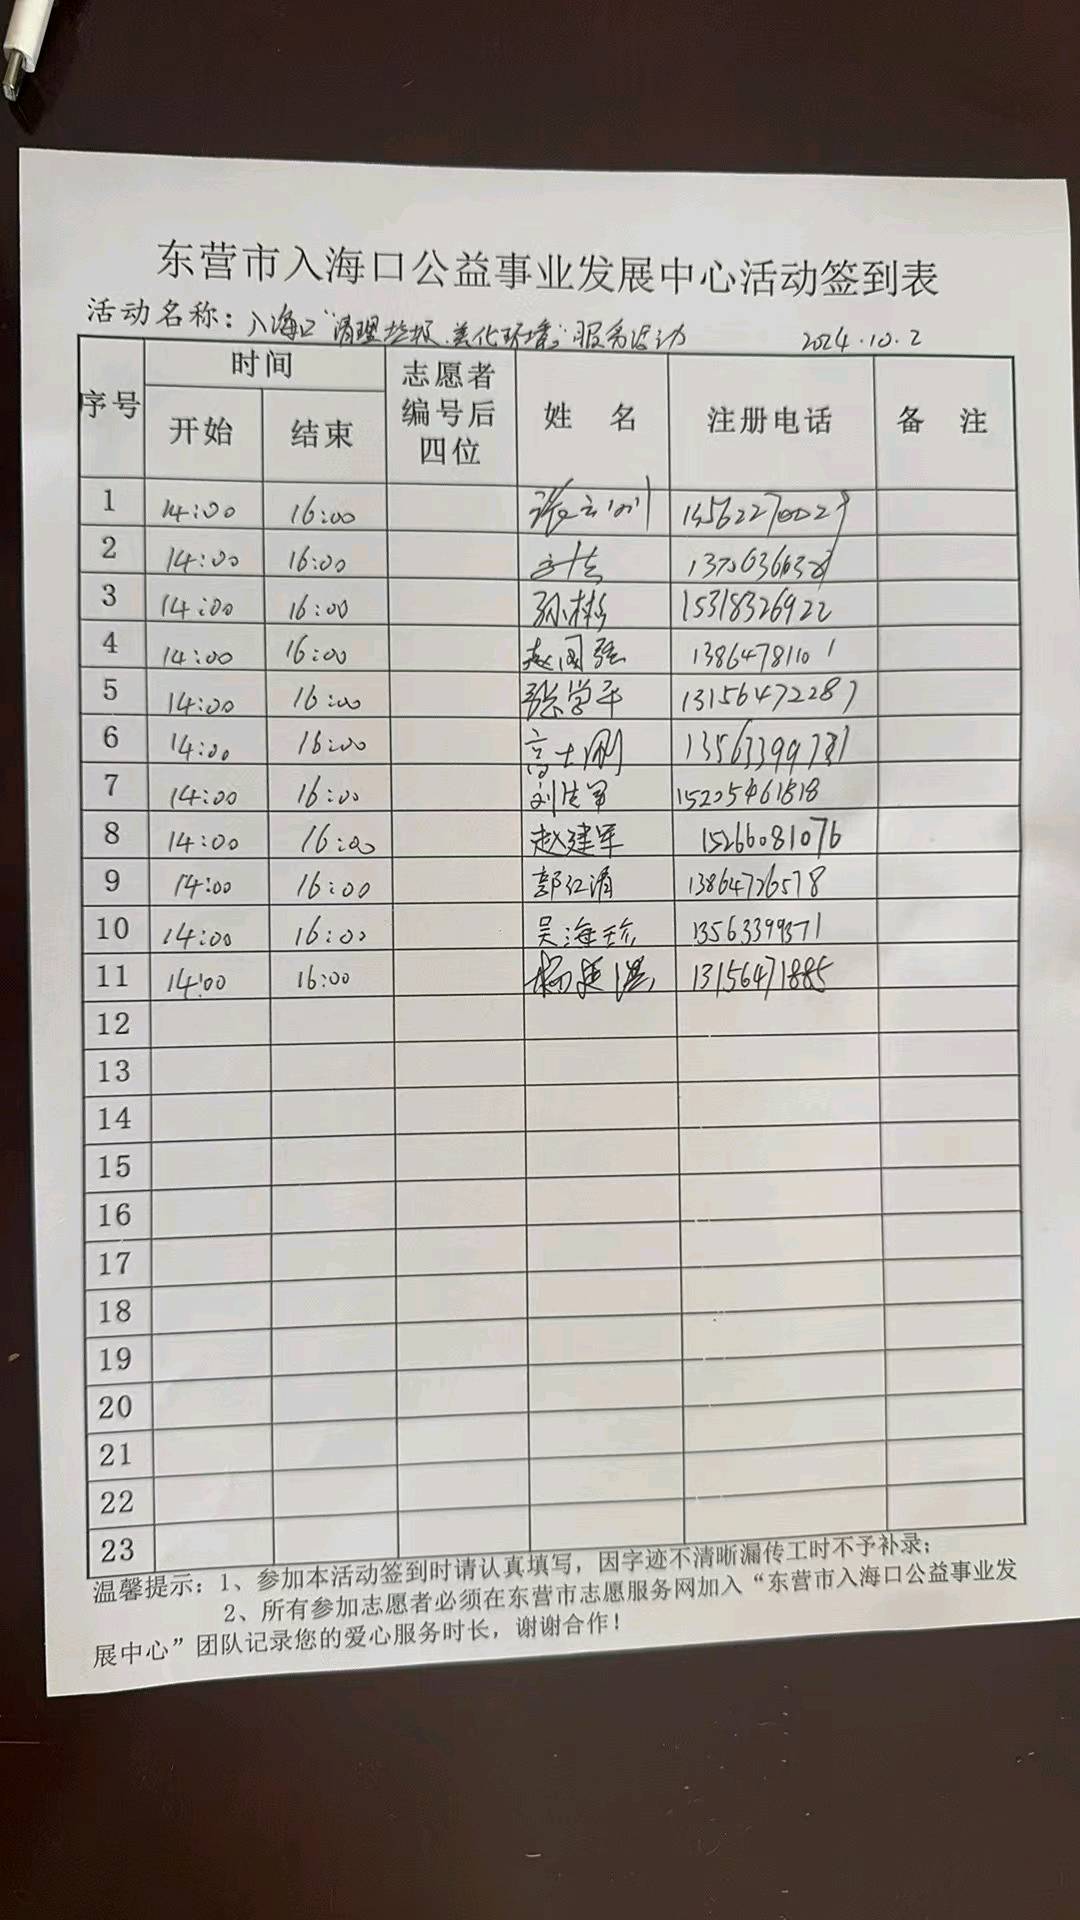 东营市入海口公益事业发展中心活动签到表
活动名称：入海口“清理垃圾.美化环境”服务活动 2024.10.2
序号 时间 志愿者编号后四位 姓名 注册电话 备注
开始 结束
1 14:00 16:00
2 14:00 16:00
3 14:00 16:00 孙彬 15318326922
4 14:00 16:00 赵国强 13864781101
5 14:00 16:00 张学平 13156472287
6 14:00 16:00 高士刚 13563399781
7 14:00 16:00 15205461818
8 14:00 16:00 赵建军 15266081076
9 14:00 16:00 郭江清 13864726578
10 14:00 16:00 吴海珍 13563399371
11 14:00 16:00 13156471885
12
13
14
15
16
17
18
19
20
21
22
23
温馨提示：1、参加本活动签到时请认真填写，因字迹不清晰漏传工时不予补录；
2、所有参加志愿者必须在东营市志愿服务网加入“东营市入海口公益事业发
展中心”团队记录您的爱心服务时长，谢谢合作！